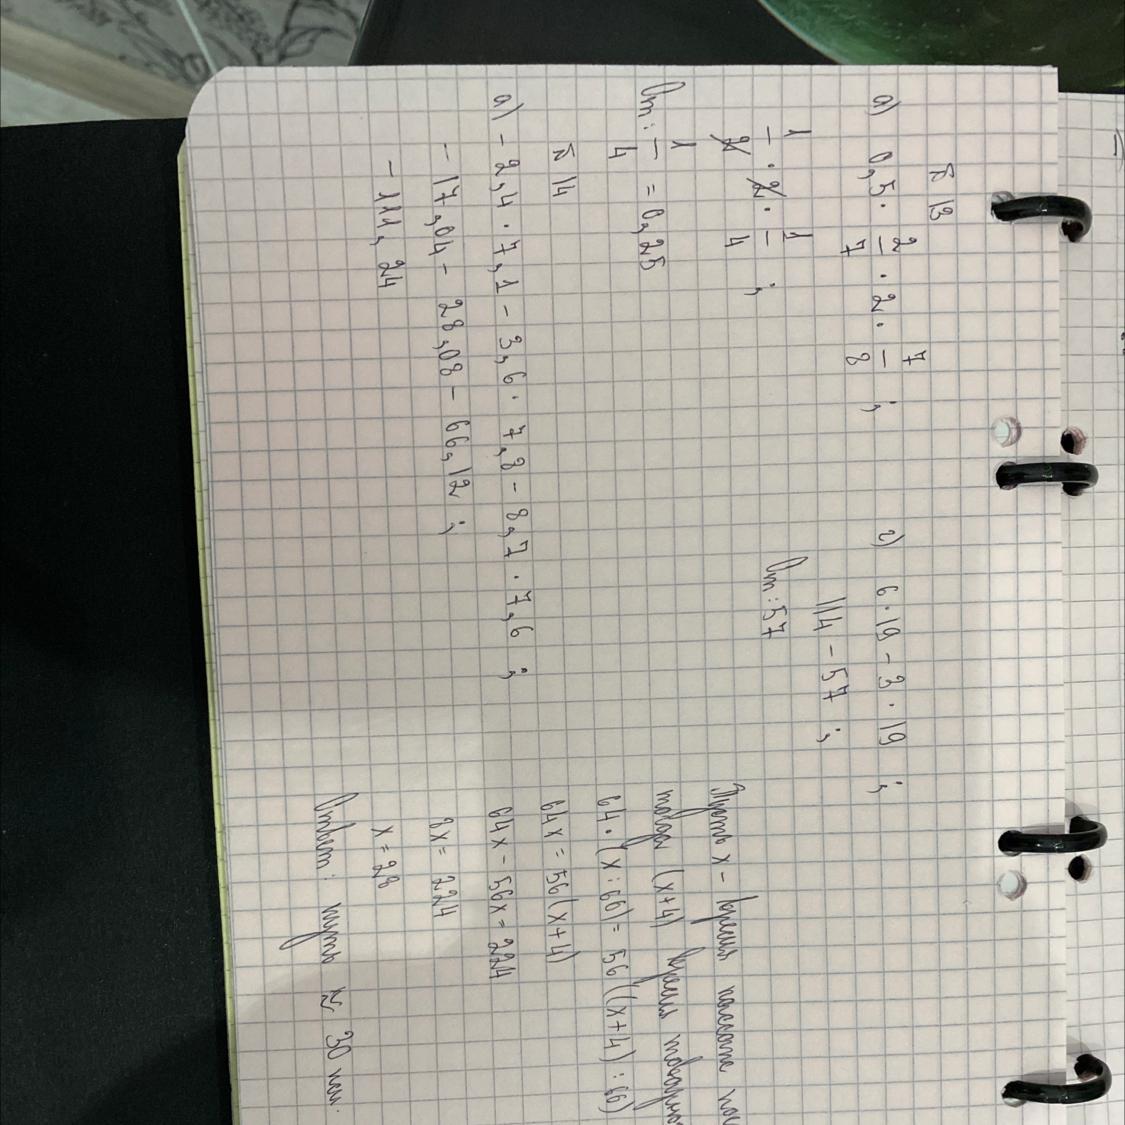 № 13
а) 0,5 · 2/7 · 2 · 7/8 ;
1/2 · 2 · 1/4 ;
От: 1/4 = 0,25
г) 6·19 - 3·19 ;
114 - 57 ;
От: 57
№ 14
а) - 2,4 · 7,1 - 3,6 · 7,8 - 8,7 · 7,6 ;
- 17,04 - 28,08 - 66,12 ;
- 111,24
Пусть x - время пассаж
тогда (x+4) время товарно
64 · (x : 60) = 56((x+4) : 60)
64x = 56(x+4)
64x - 56x = 224
8x = 224
x = 28
Ответ: путь ≈ 30 км.